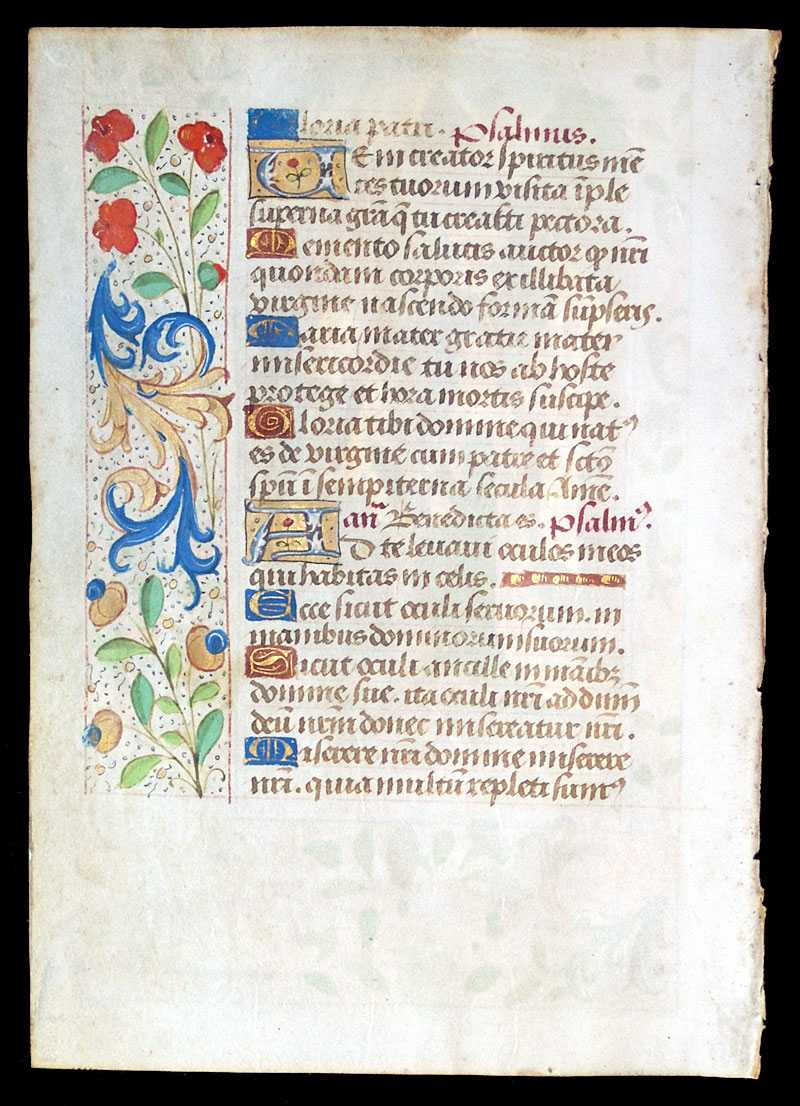 Gloria patri. Psalmus.
Veni creator spiritus mē
tes tuorum visita īple
superna grā q̄ tu creasti pectora.
Memento salutis auctor qȝ nr̄i
quondam corporis ex illibata
virgine nascendo formā sūpseris.
Maria mater gratie mater
misericordie tu nos ab hoste
protege et hora mortis suscipe.
Gloria tibi domine qui natꝰ
es de virgine cum patre et sctō
spū ī sempiterna secula Amē.
an̄ Benedicta es. Psalmꝰ.
AD te levavi oculos meos
qui habitas in celis.
Ecce sicut oculi servorum. in
manibus dominorum suorum.
Sicut oculi ancille in manibȝ
domine sue. ita oculi nr̄i ad dūm
deū nrm̄ donec misereatur nr̄i.
Miserere nr̄i domine miserere
nr̄i. quia multū repleti sumꝰ